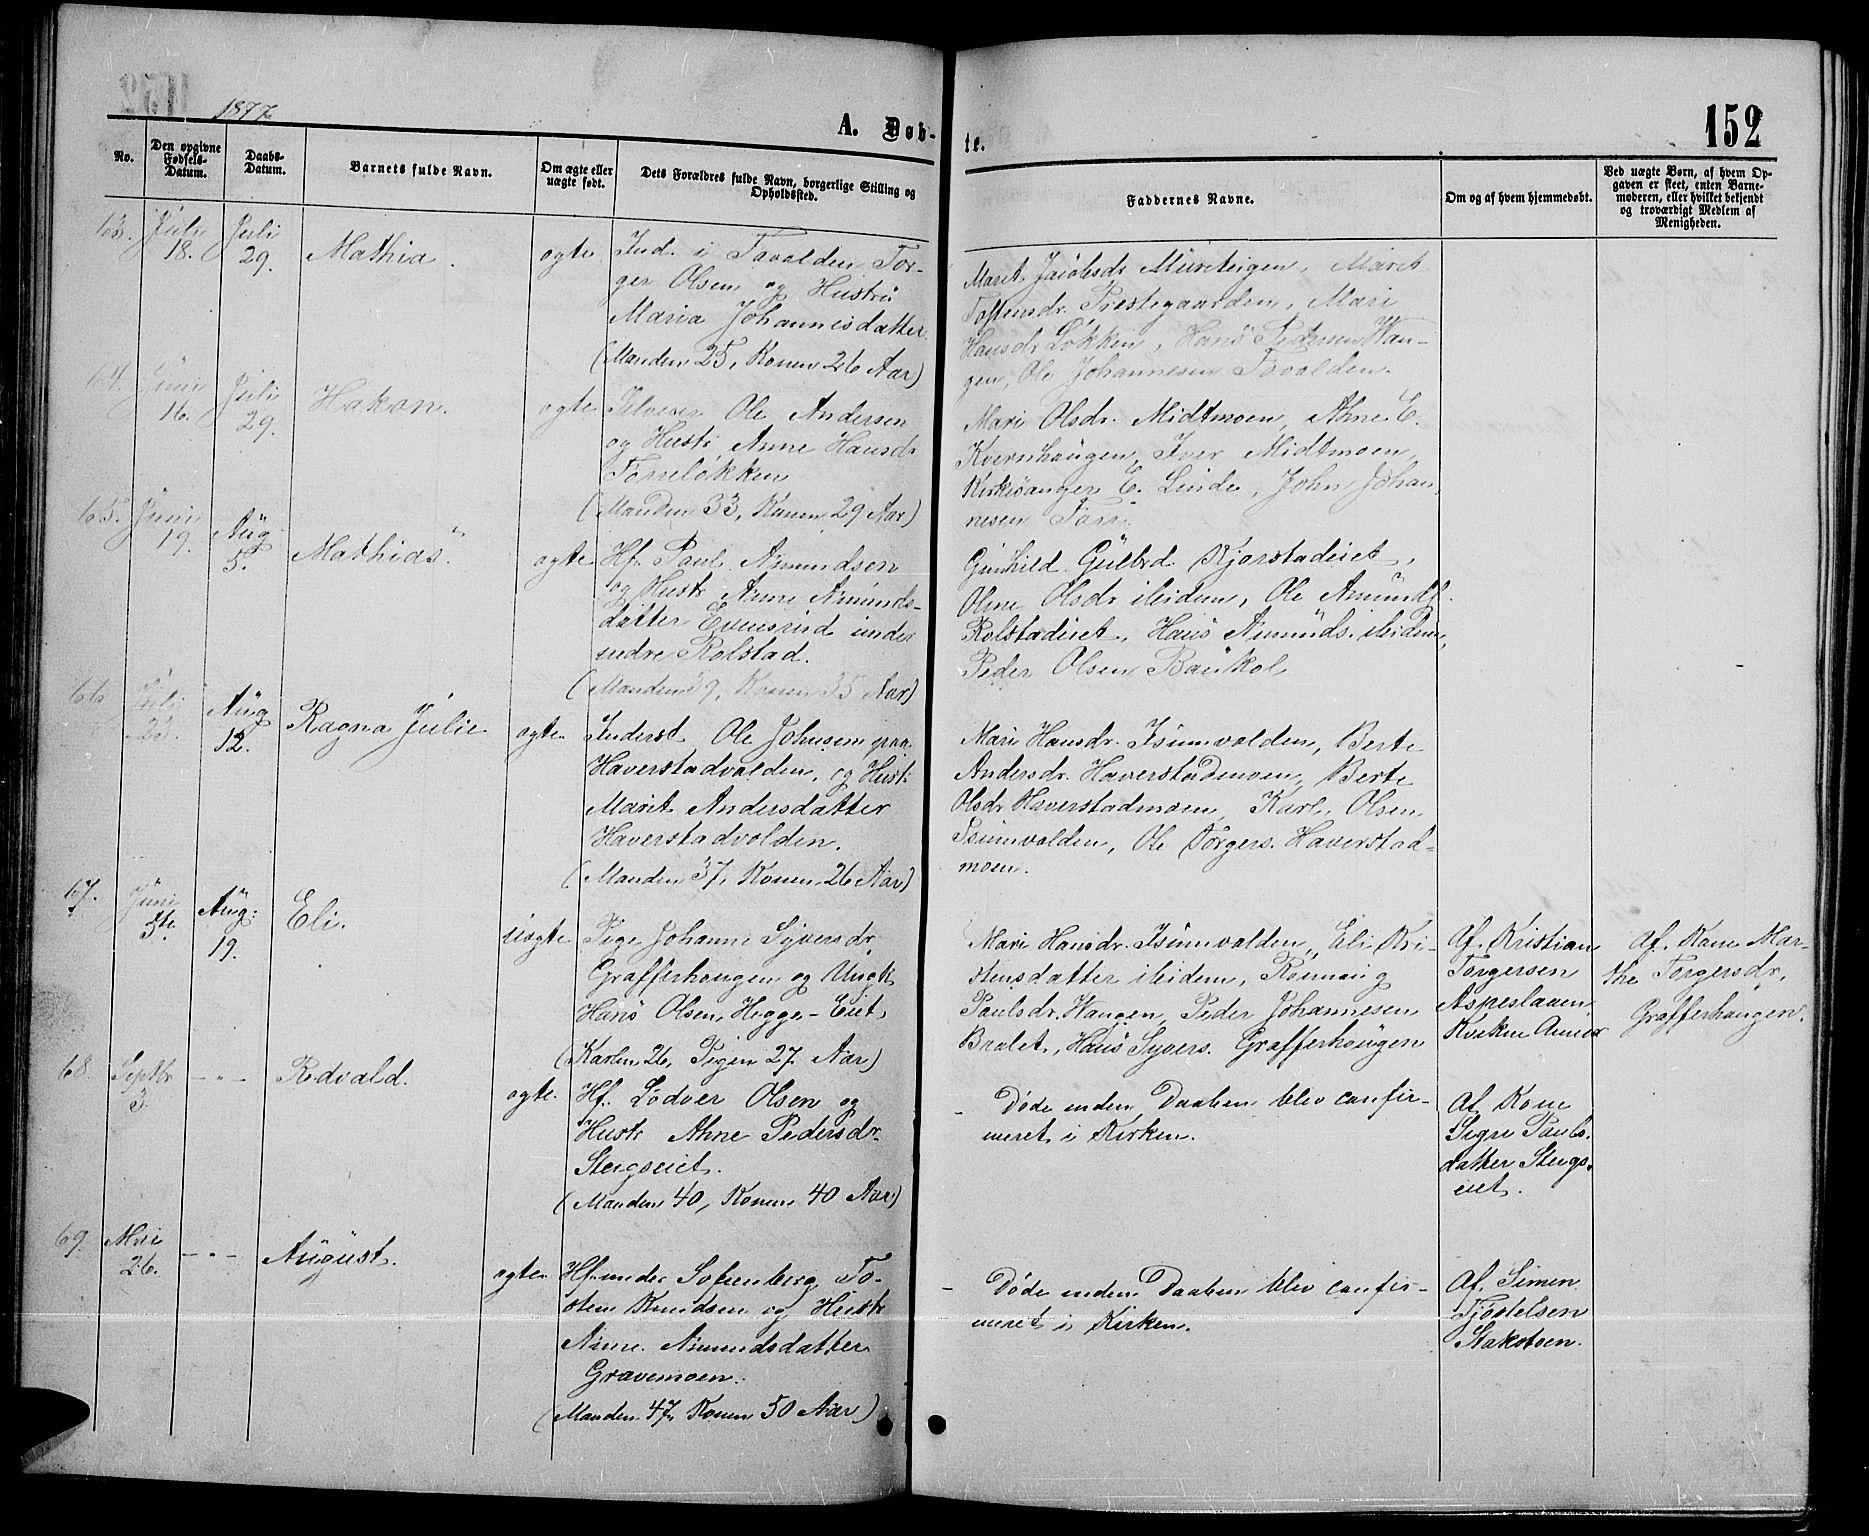 1877
A. Døb-
te.
152
No.
Den opgivne Fødsels-Datum.
Daabs-Datum.
Barnets fulde Navn.
Om ægte eller uægte født.
Dets Forældres fulde Navn, borgerlige Stilling og Opholdssted.
Faddernes Navne.
Om og af hvem hjemmedøbt.
Ved uægte Børn, af hvem Op-
gaven er skeet, enten Barne-
moderen, eller hvilket bekjendt
og troværdigt Medlem af
Menigheden.
63. Juli 18. Juli 29. Mathia. ægte
Ind. i Tovolden Tor-
ger Olsen og Hustru
Maria Johannesdatter
(Manden 25, Konen 26 Aar)
Marit Jacobsdr. Mureteigen, Marit
Toftensdr. Prestegaarden, Mari
Hansdr. Løkken, Hans Pedersen Hau-
gen, Ole Johannesen Tovolden.
64. Juni 16. Juli 29. Hakon. ægte
Ole Andersen
og Hustr. Anne Hansdr.
Forreløkken
(Manden 33, Konen 29 Aar)
Mari Olsdr. Midtmoen, Ahne E.
Kvernhaugen, Iver Midtmoen,
Kirkesanger E. Linde, John Johan-
nesen Forr.
65. Juni 19. Aug 5. Mathias. ægte
Hf. Paul Amundsen
og Hustr. Anne Amunds-
datter Evensrud under
nedre Kolstad.
(Manden 39, Konen 35 Aar)
Gunhild Gulbrd. Kjorstadeiet,
Oline Olsdr. ibidem, Ole Amunds.
Kolstadeiet, Hans Amunds. ibidem,
Peder Olsen Baukol
66 Juli 23. Aug 12. Ragna Julie ægte
Inderst Ole Johnsen paa
Haverstadvolden, og Hustr.
Marit Andersdatter
Haverstadvolden.
(Manden 37, Konen 26 Aar)
Mari Hansdr. Isumvolden, Berte
Andersdr. Haverstadmoen, Berte
Olsdr. Haverstadmoen, Karl Olsen
Isumvolden, Ole Torgers. Haverstad-
moen.
67. Juni 5te Aug. 19. Eli. uægte
Pige Johanne Syversdr.
Grafferhougen og Ungk.
Hans Olsen, Hegge-Eiet
(Karlen 26, Pigen 27 Aar)
Mari Hansdr. Isumvolden, Eli Kri-
stensdatter ibidem, Rønnaug
Paulsdr. Haugen, Peder Johannesen
Bralet, Hans Syvers. Grafferhaugen
Af Kristian
Torgersen
Aspeslaaen
Kvikne Annex
Af Kone Mar-
the Torgersdr.
Grafferhaugen.
68. Septbr 3. - " - Redvald. ægte.
Hf. Lodver Olsen og
Hustr. Ahne Pedersdr.
Steigseiet.
(Manden 40, Konen 40 Aar)
- Døde inden Daaben blev confir-
meret i Kirken.
Af Kone
Sigri Pauls-
datter Steigs-
eiet.
69. Mai 26. - " - August. ægte
Hf. under Sofienberg To-
sten Knudsen og Hustr.
Anne Amundsdatter
Gravemoen.
(Manden 47, Konen 50 Aar)
- Døde inden Daaben blev confir-
meret i Kirken.
Af Simen
Tjostelsen
Stakstoen.